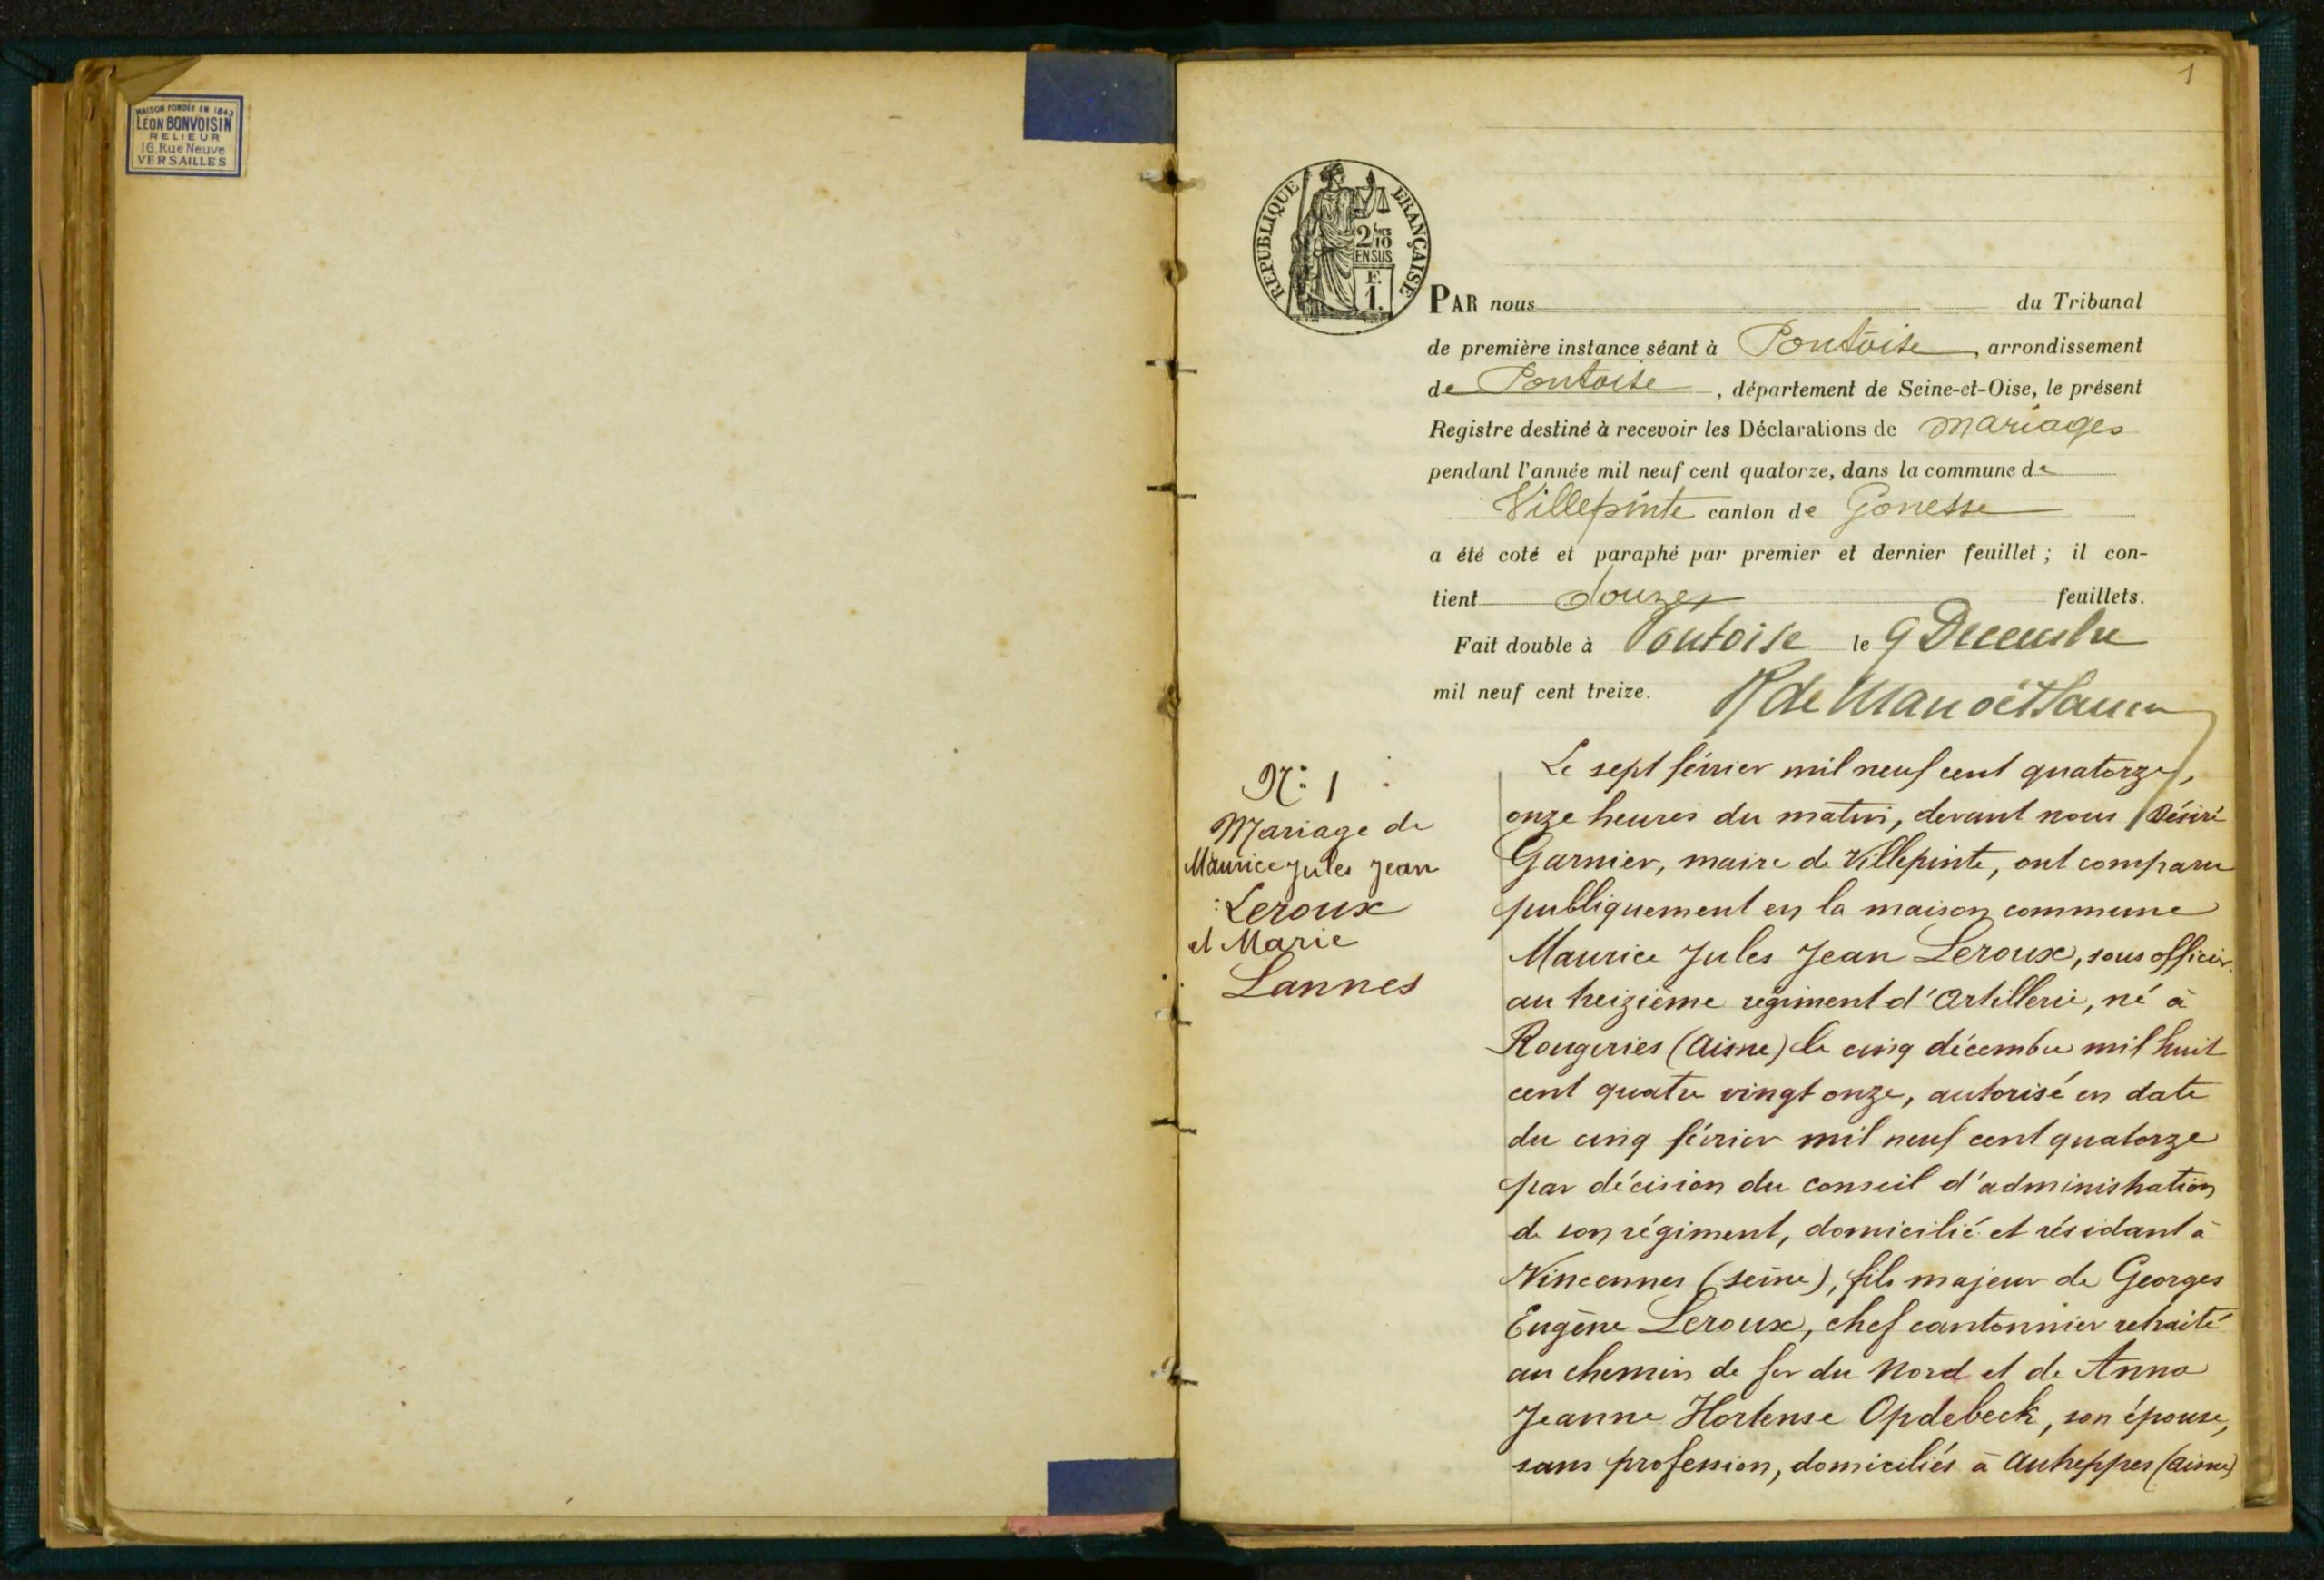 MAISON FONDÉE EN 1843
LÉON BONVOISIN
RELIEUR
16, Rue Neuve
VERSAILLES
1
REPUBLIQUE FRANÇAISE
2/10
EN SUS
F.
1.
PAR nous du Tribunal
de première instance séant à Pontoise, arrondissement
de Pontoise, département de Seine-et-Oise, le présent
Registre destiné à recevoir les Déclarations de Mariages
pendant l'année mil neuf cent quatorze, dans la commune de
Villepinte canton de Gonesse
a été coté et paraphé par premier et dernier feuillet ; il con-
tient douze feuillets.
Fait double à Pontoise le 9 Decembre
mil neuf cent treize.
N° 1
Mariage de
Maurice Jules Jean
Leroux
et Marie
Lannes
Le sept février mil neuf cent quatorze,
onze heures du matin, devant nous Désiré
Garnier, maire de Villepinte, ont comparu
publiquement en la maison commune
Maurice Jules Jean Leroux, sous officier
au treizième régiment d'Artillerie, né à
Rougeries (Aisne) le cinq décembre mil huit
cent quatre vingt onze, autorisé en date
du cinq février mil neuf cent quatorze
par décision du conseil d'administration
de son régiment, domicilié et résidant à
Vincennes (Seine), fils majeur de Georges
Eugène Leroux, chef cantonnier retraité
au chemin de fer du Nord et de Anna
Jeanne Hortense Opdebeck, son épouse,
sans profession, domiciliés à Autreppes (Aisne)